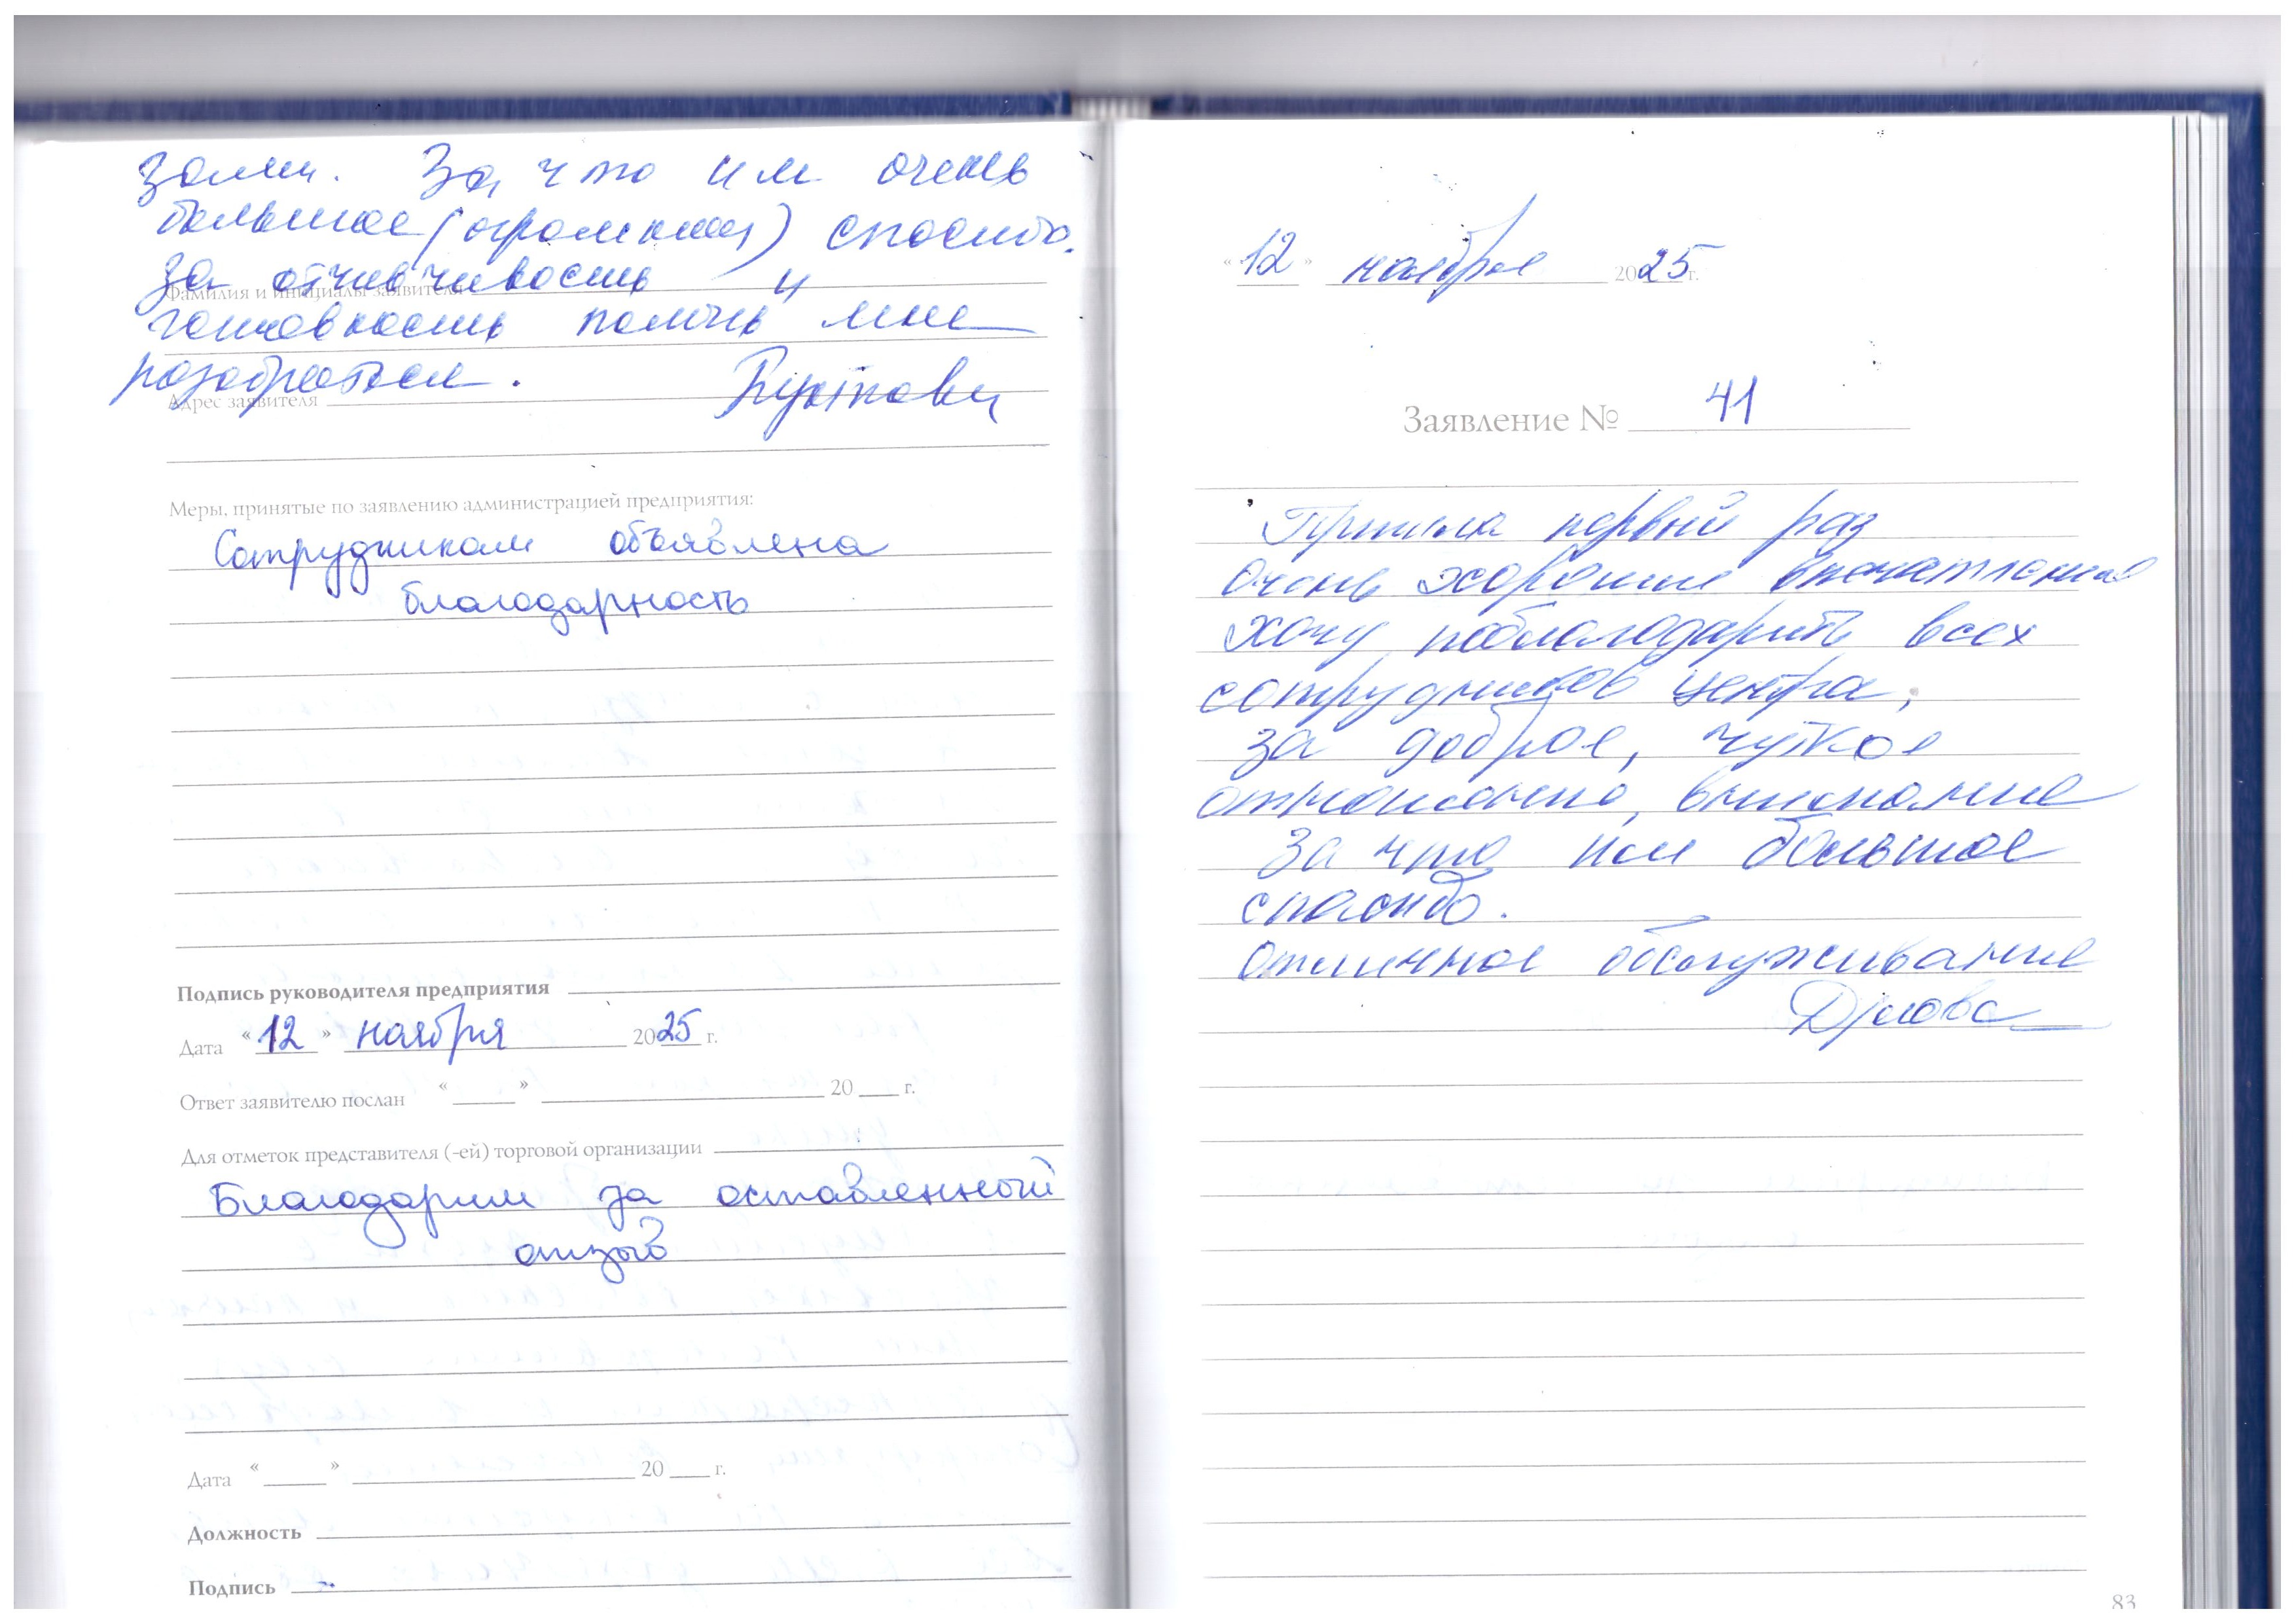 За что им очень
большое (огромный) спасибо.
за отчивчивость и
Фамилия и инициалы заявителя
готовность помочь мне
разобраться.
Адрес заявителя
Меры, принятые по заявлению администрацией предприятия:
Сотрудникам объявлена
благодарность
Подпись руководителя предприятия
Дата "12" ноября 2025 г.
Ответ заявителю послан "___" ___ 20___ г.
Для отметок представителя (-ей) торговой организации
Благодарим за оставленный
отзыв
Дата "___" ___ 20___ г.
Должность
Подпись
"12" ноября 2025 г.
Заявление № 41
Пришла первый раз
очень хорошие впечатления
хочу поблагодарить всех
сотрудников центра,
за доброе, чуткое
отношение, внимание
За что им большое
спасибо.
отличное обслуживание
83